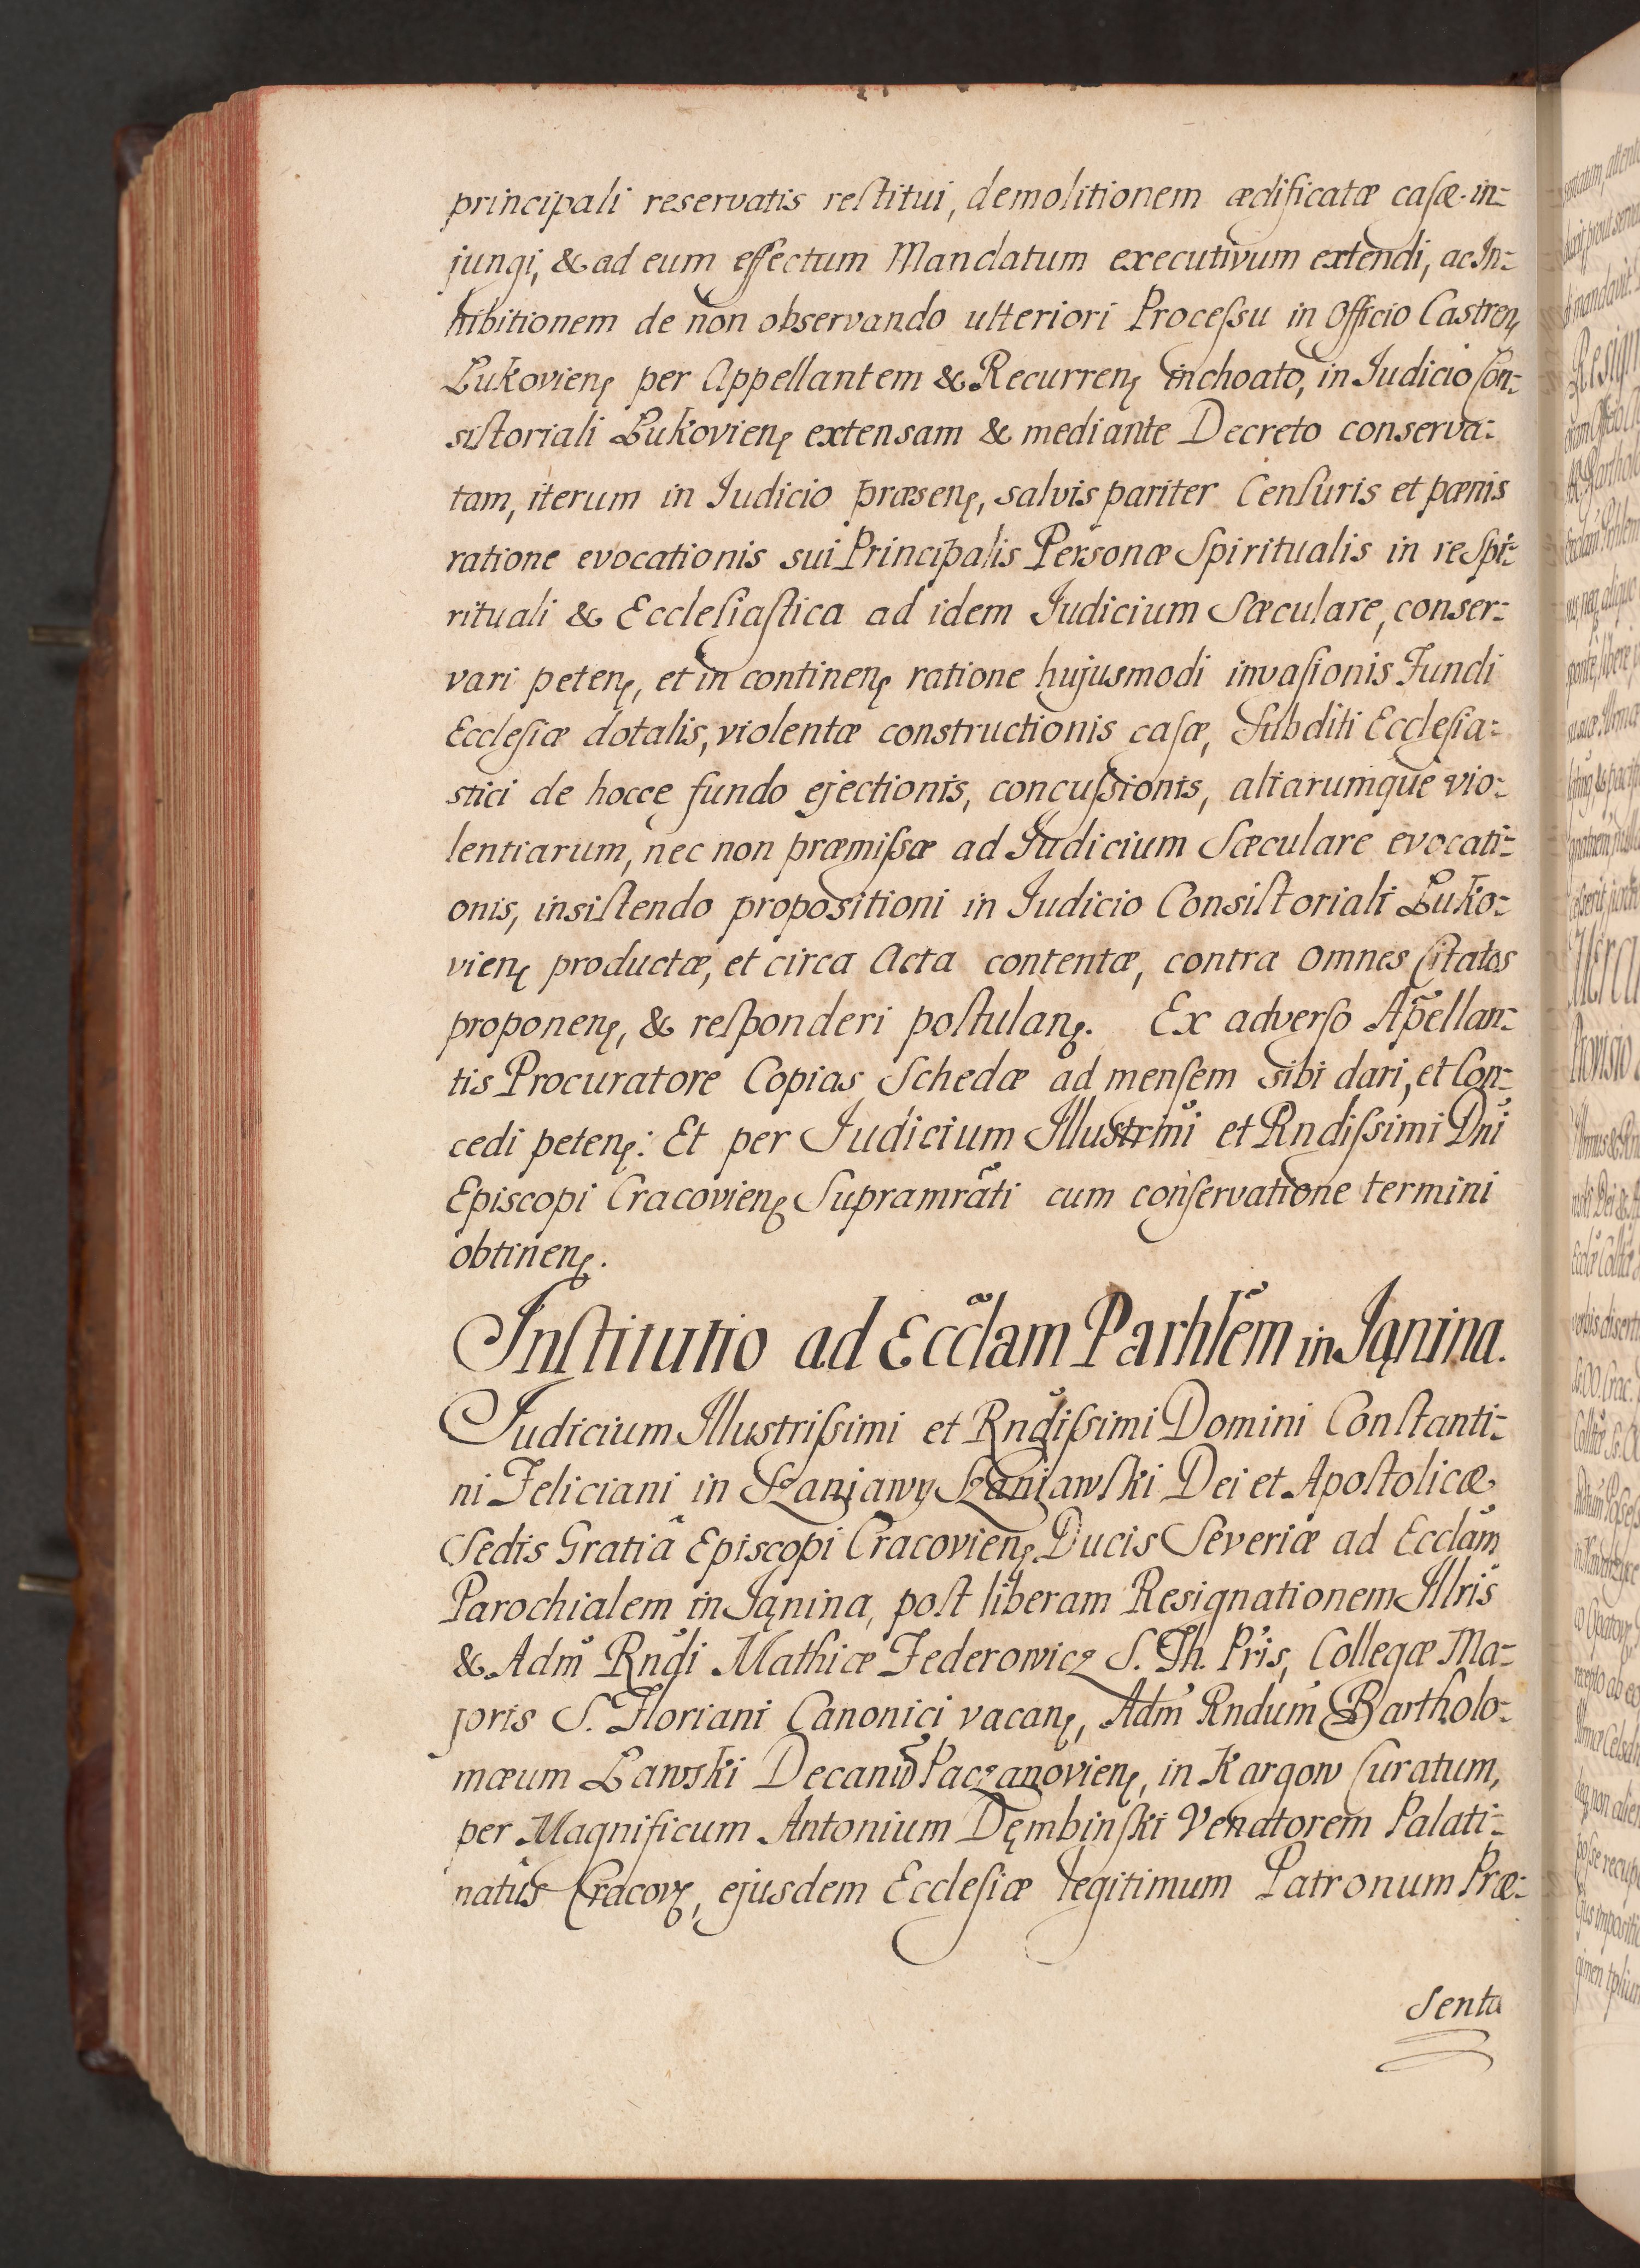 principali reservatis restitui, demolitionem ædificatæ casæ in-
jungi, & ad eum effectum Mandatum executivum extendi, ac In-
hibitionem de non observando ulteriori Processu in Officio Castren̨
Lukovien̨ per Appellantem & Recurren̨ inchoato, in Judicio Con-
sistoriali Lukovien̨ extensam & mediante Decreto conserva-
tam, iterum in Judicio præsen̨, salvis pariter Censuris et pœnis
ratione evocationis sui Principalis Personæ Spiritualis in re Spi-
rituali & Ecclesiastica ad idem Judicium Sæculare, conser-
vari peten̨, et in continen̨ ratione hujusmodi invasionis Fundi
Ecclesiæ dotalis, violentæ constructionis casæ, Subditi Ecclesia-
stici de hocce fundo ejectionis, concussionis, aliarumque vio-
lentiarum, nec non præmissæ ad Judicium Sæculare evocati-
onis, insistendo propositioni in Judicio Consistoriali Luko-
vien̨ productæ, et circa Acta contentæ, contra omnes Citatos
proponen̨, & responderi postulan̨. Ex adverso Apellan-
tis Procuratore Copias Schedæ ad mensem sibi dari, et Con-
cedi peten̨: Et per Judicium Illustrmi et Rndissimi Dni
Episcopi Cracovien̨ Supramrati cum conservatione termini
obtinen̨.
Institutio ad Ecclam Parhlem in Janina.
Judicium Illustrissimi et Rndissimi Domini Constanti-
ni Feliciani in Szaniawy Szaniawski Dei et Apostolicæ
Sedis Gratiâ Episcopi Cracovien̨ Ducis Severiæ ad Ecclam
Parochialem in Janina, post liberam Resignationem Illris
& Adm Rndi Mathiæ Federowicz S. Th. Pris, Collegæ Ma-
joris S. Floriani Canonici vacan̨, Adm Rndum Bartholo-
mæum Lawski Decanum Paczanovien̨, in Kargow Curatum,
per Magnificum Antonium Dęmbinski Venatorem Palati-
natûs Cracov̨, ejusdem Ecclesiæ legitimum Patronum Præ-
senta